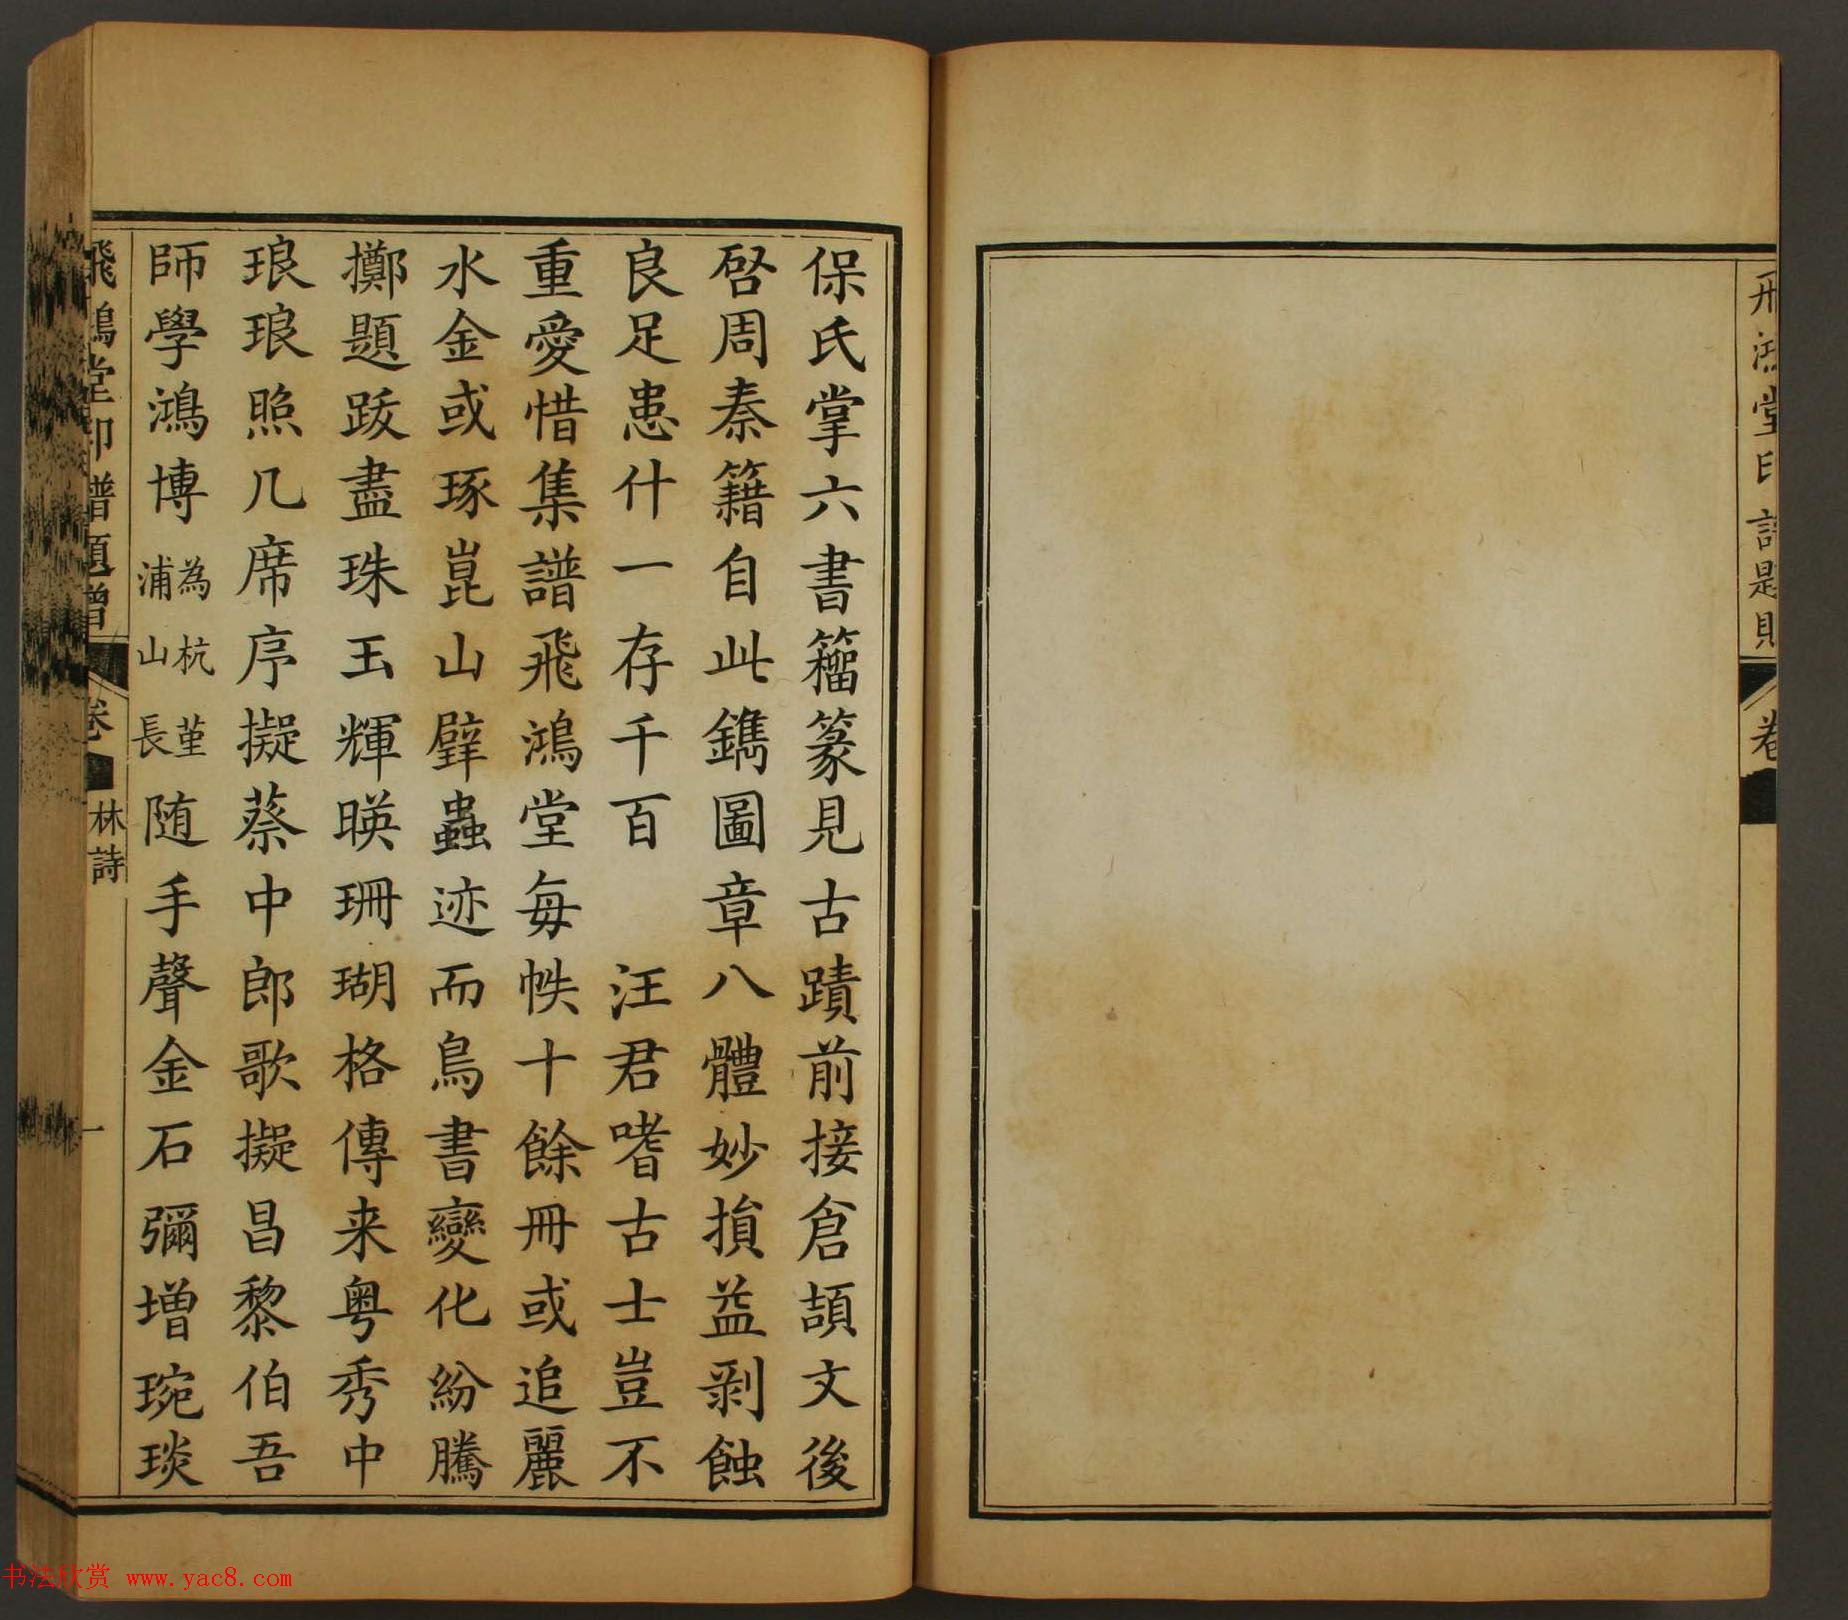 保氏掌六書籀篆見古蹟前接倉頡文後
啓周秦籍自此鐫圖章八體妙損益剥蝕
良足患什一存千百　汪君嗜古士豈不
重愛惜集譜飛鴻堂每帙十餘冊或追麗
水金或琢崑山璧蟲迹而鳥書變化紛騰
擲題跋盡珠玉輝暎珊瑚格傳来粤秀中
琅琅照几席序擬蔡中郎歌擬昌黎伯吾
師學鴻博為杭堇浦山長随手聲金石彌增琬琰
飛鴻堂印譜題贈
卷
林詩
一
飛鴻堂印譜題贈
卷
书法欣赏 www.yac8.com